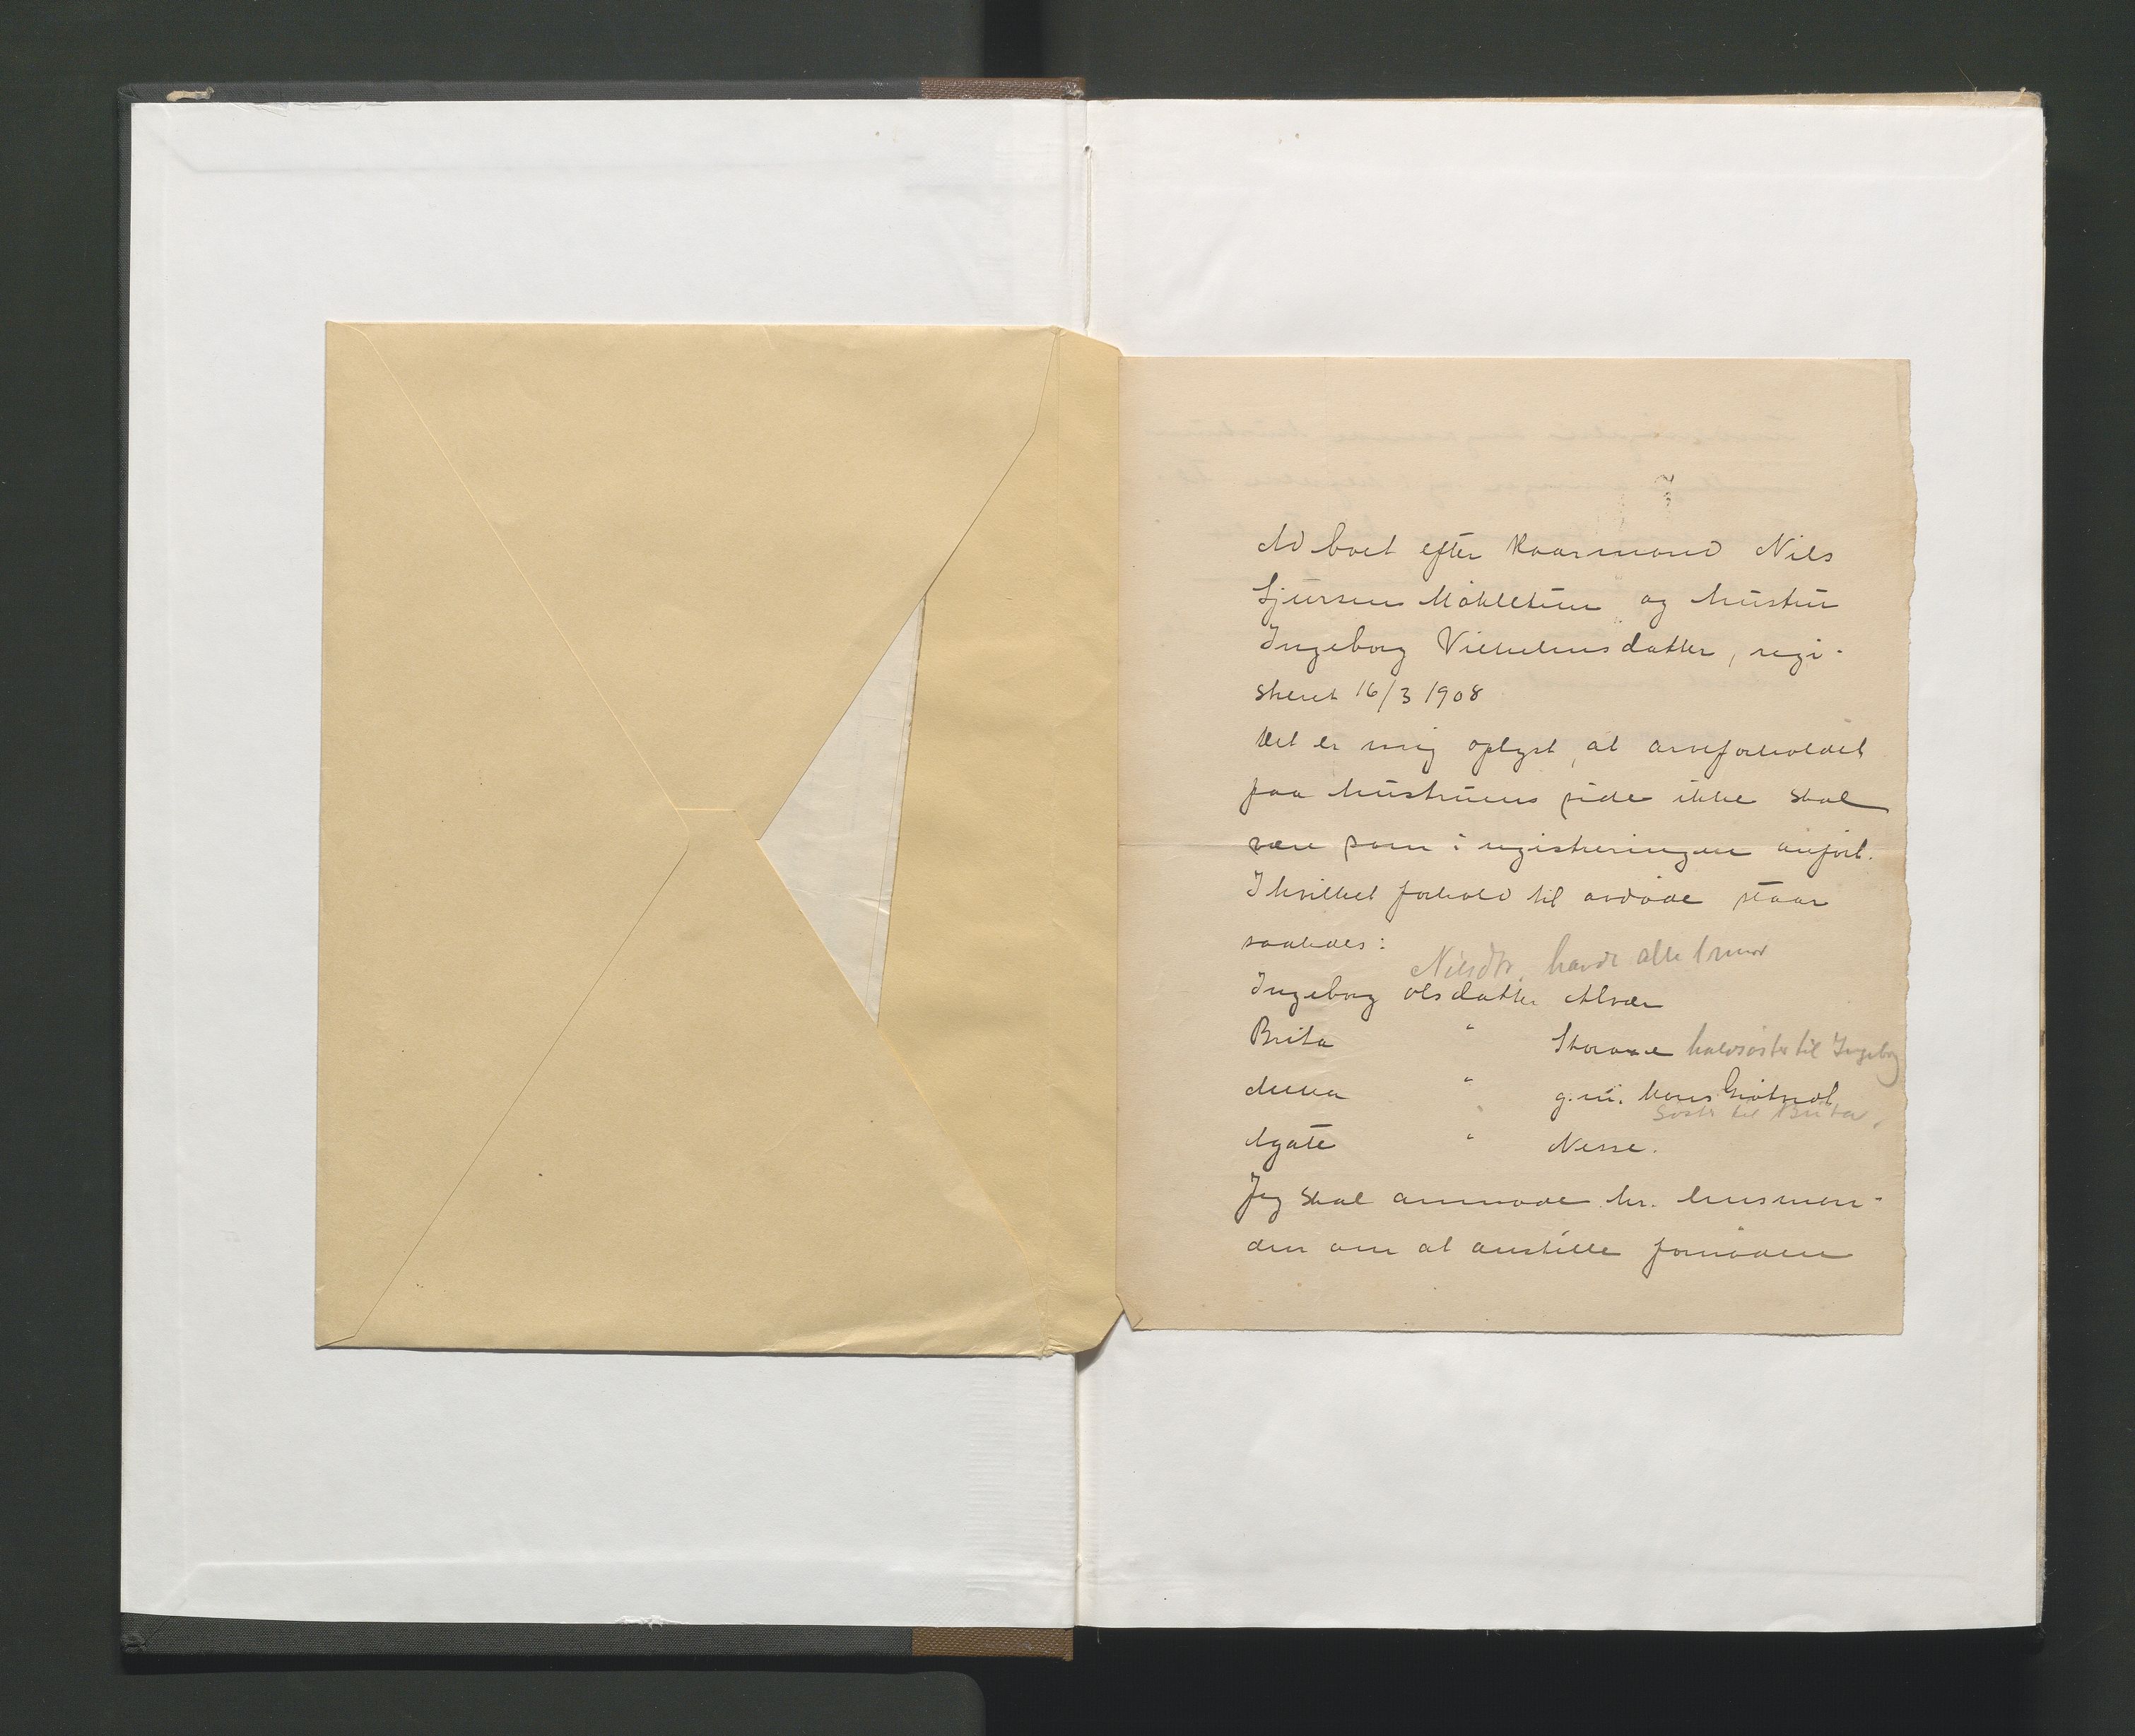 Ad boet efter kaarmand Nils
Sjursen Mökletun og hustru
Ingeborg Vilhelmsdatter, regi-
streret 16/3 1908
Det er mig oplyst, at arveforholdet
paa hustruens side ikke skal
være som i registreringen anført.
I hvilket forhold til avdøde staar
saaledes:
Nilsdtr. havde alle
Ingeborg Olsdatter Alvær
Brita " halvsøster til Ingeborg
Anna " g. m. Mons
Søster til Brita.
Agate " Nesse.
Jeg skal anmode hr. lensman-
den om at anstille fornöden